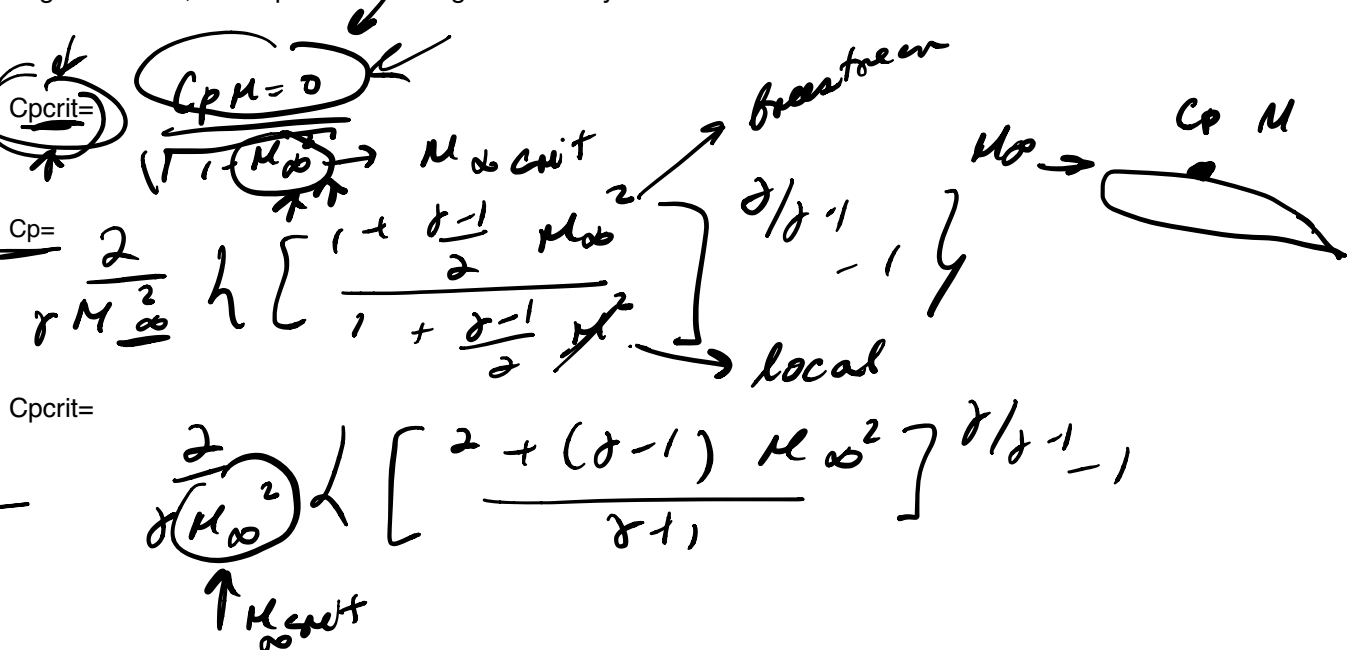 Cpcrit= Cp M = 0 / √(1 - M∞²) → M∞ crit
freestream
M∞ → Cp M
Cp= 2 / γ M∞² { [ (1 + (γ-1)/2 M∞²) / (1 + (γ-1)/2 M²) ] γ/γ-1 - 1 }
local
Cpcrit= 2 / γ M∞² { [ (2 + (γ-1) M∞²) / (γ+1) ] γ/γ-1 - 1
M∞ crit